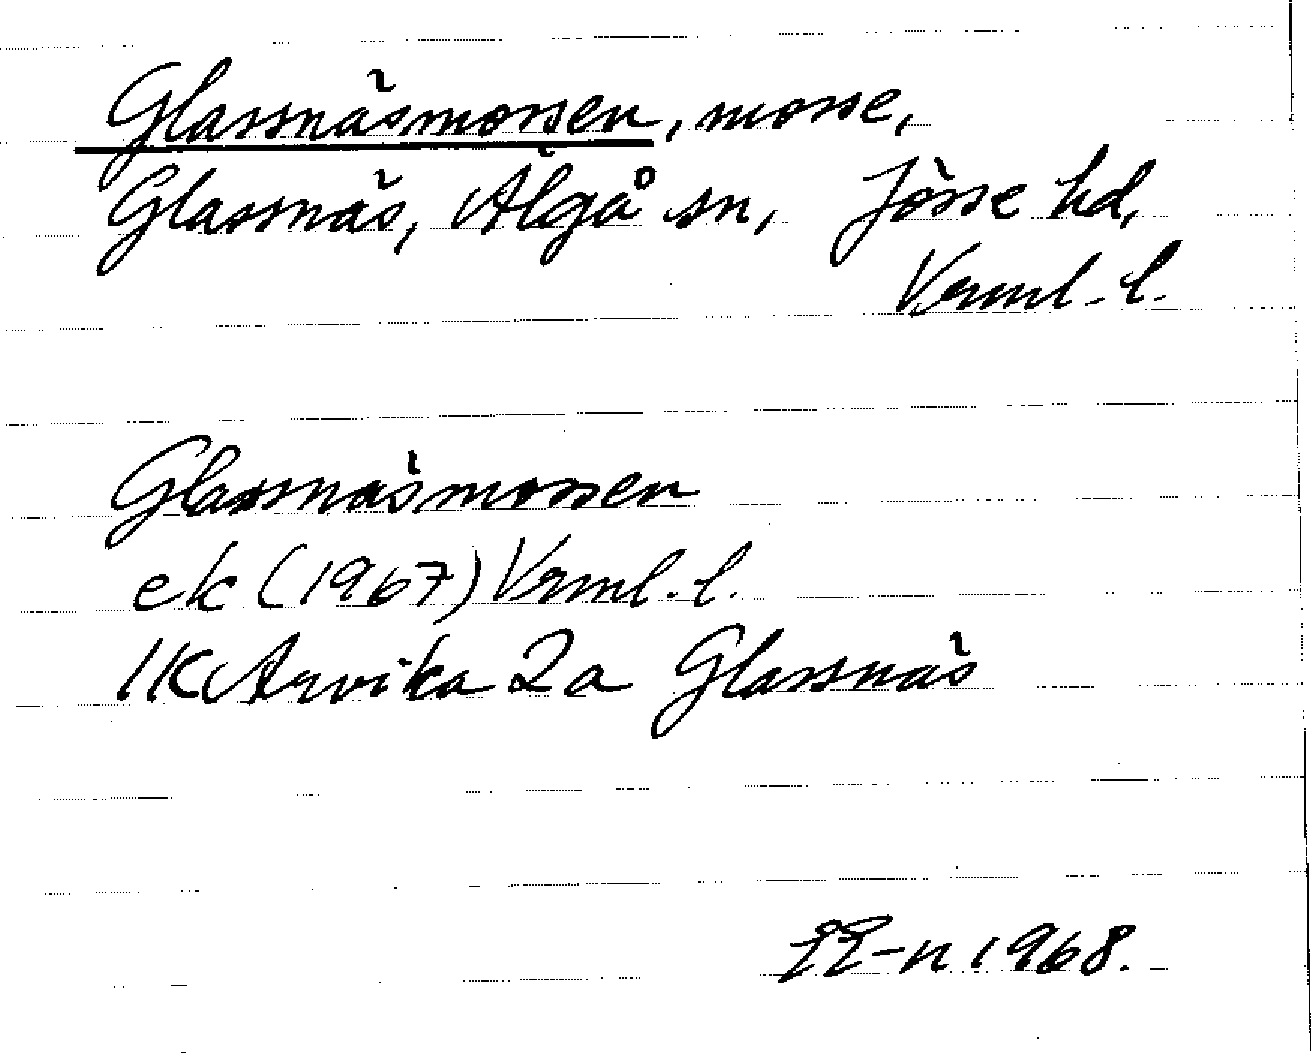 Glassnäsmossen, mosse,
Glassnäs, Älgå sn, Jösse hd,
Verml. l.
Glassnäsmossen
ek (1967) Verml. l.
1K Arvika 2a Glassnäs
1968.